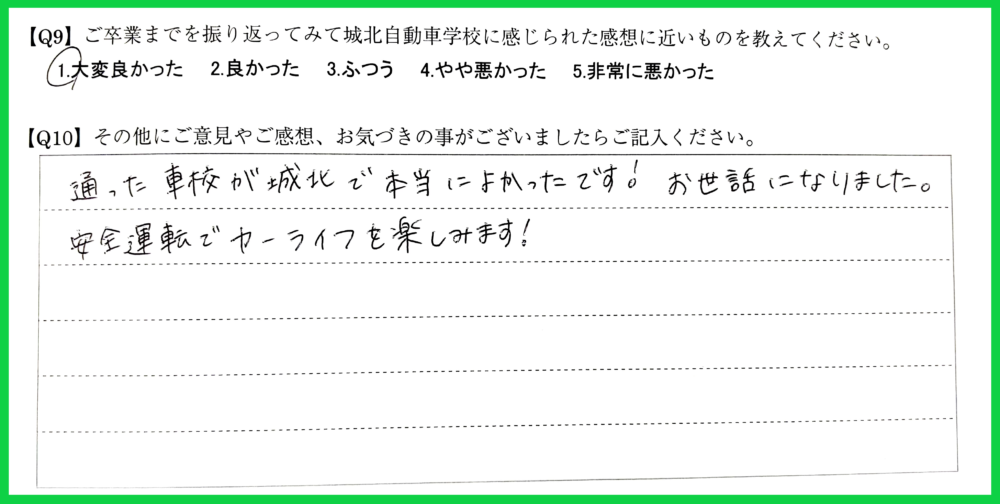 【Q9】ご卒業までを振り返ってみて城北自動車学校に感じられた感想に近いものを教えてください。
1.大変良かった 2.良かった 3.ふつう 4.やや悪かった 5.非常に悪かった
【Q10】その他にご意見やご感想、お気づきの事がございましたらご記入ください。
通った車校が城北で本当によかったです! お世話になりました。
安全運転でカーライフを楽しみます!